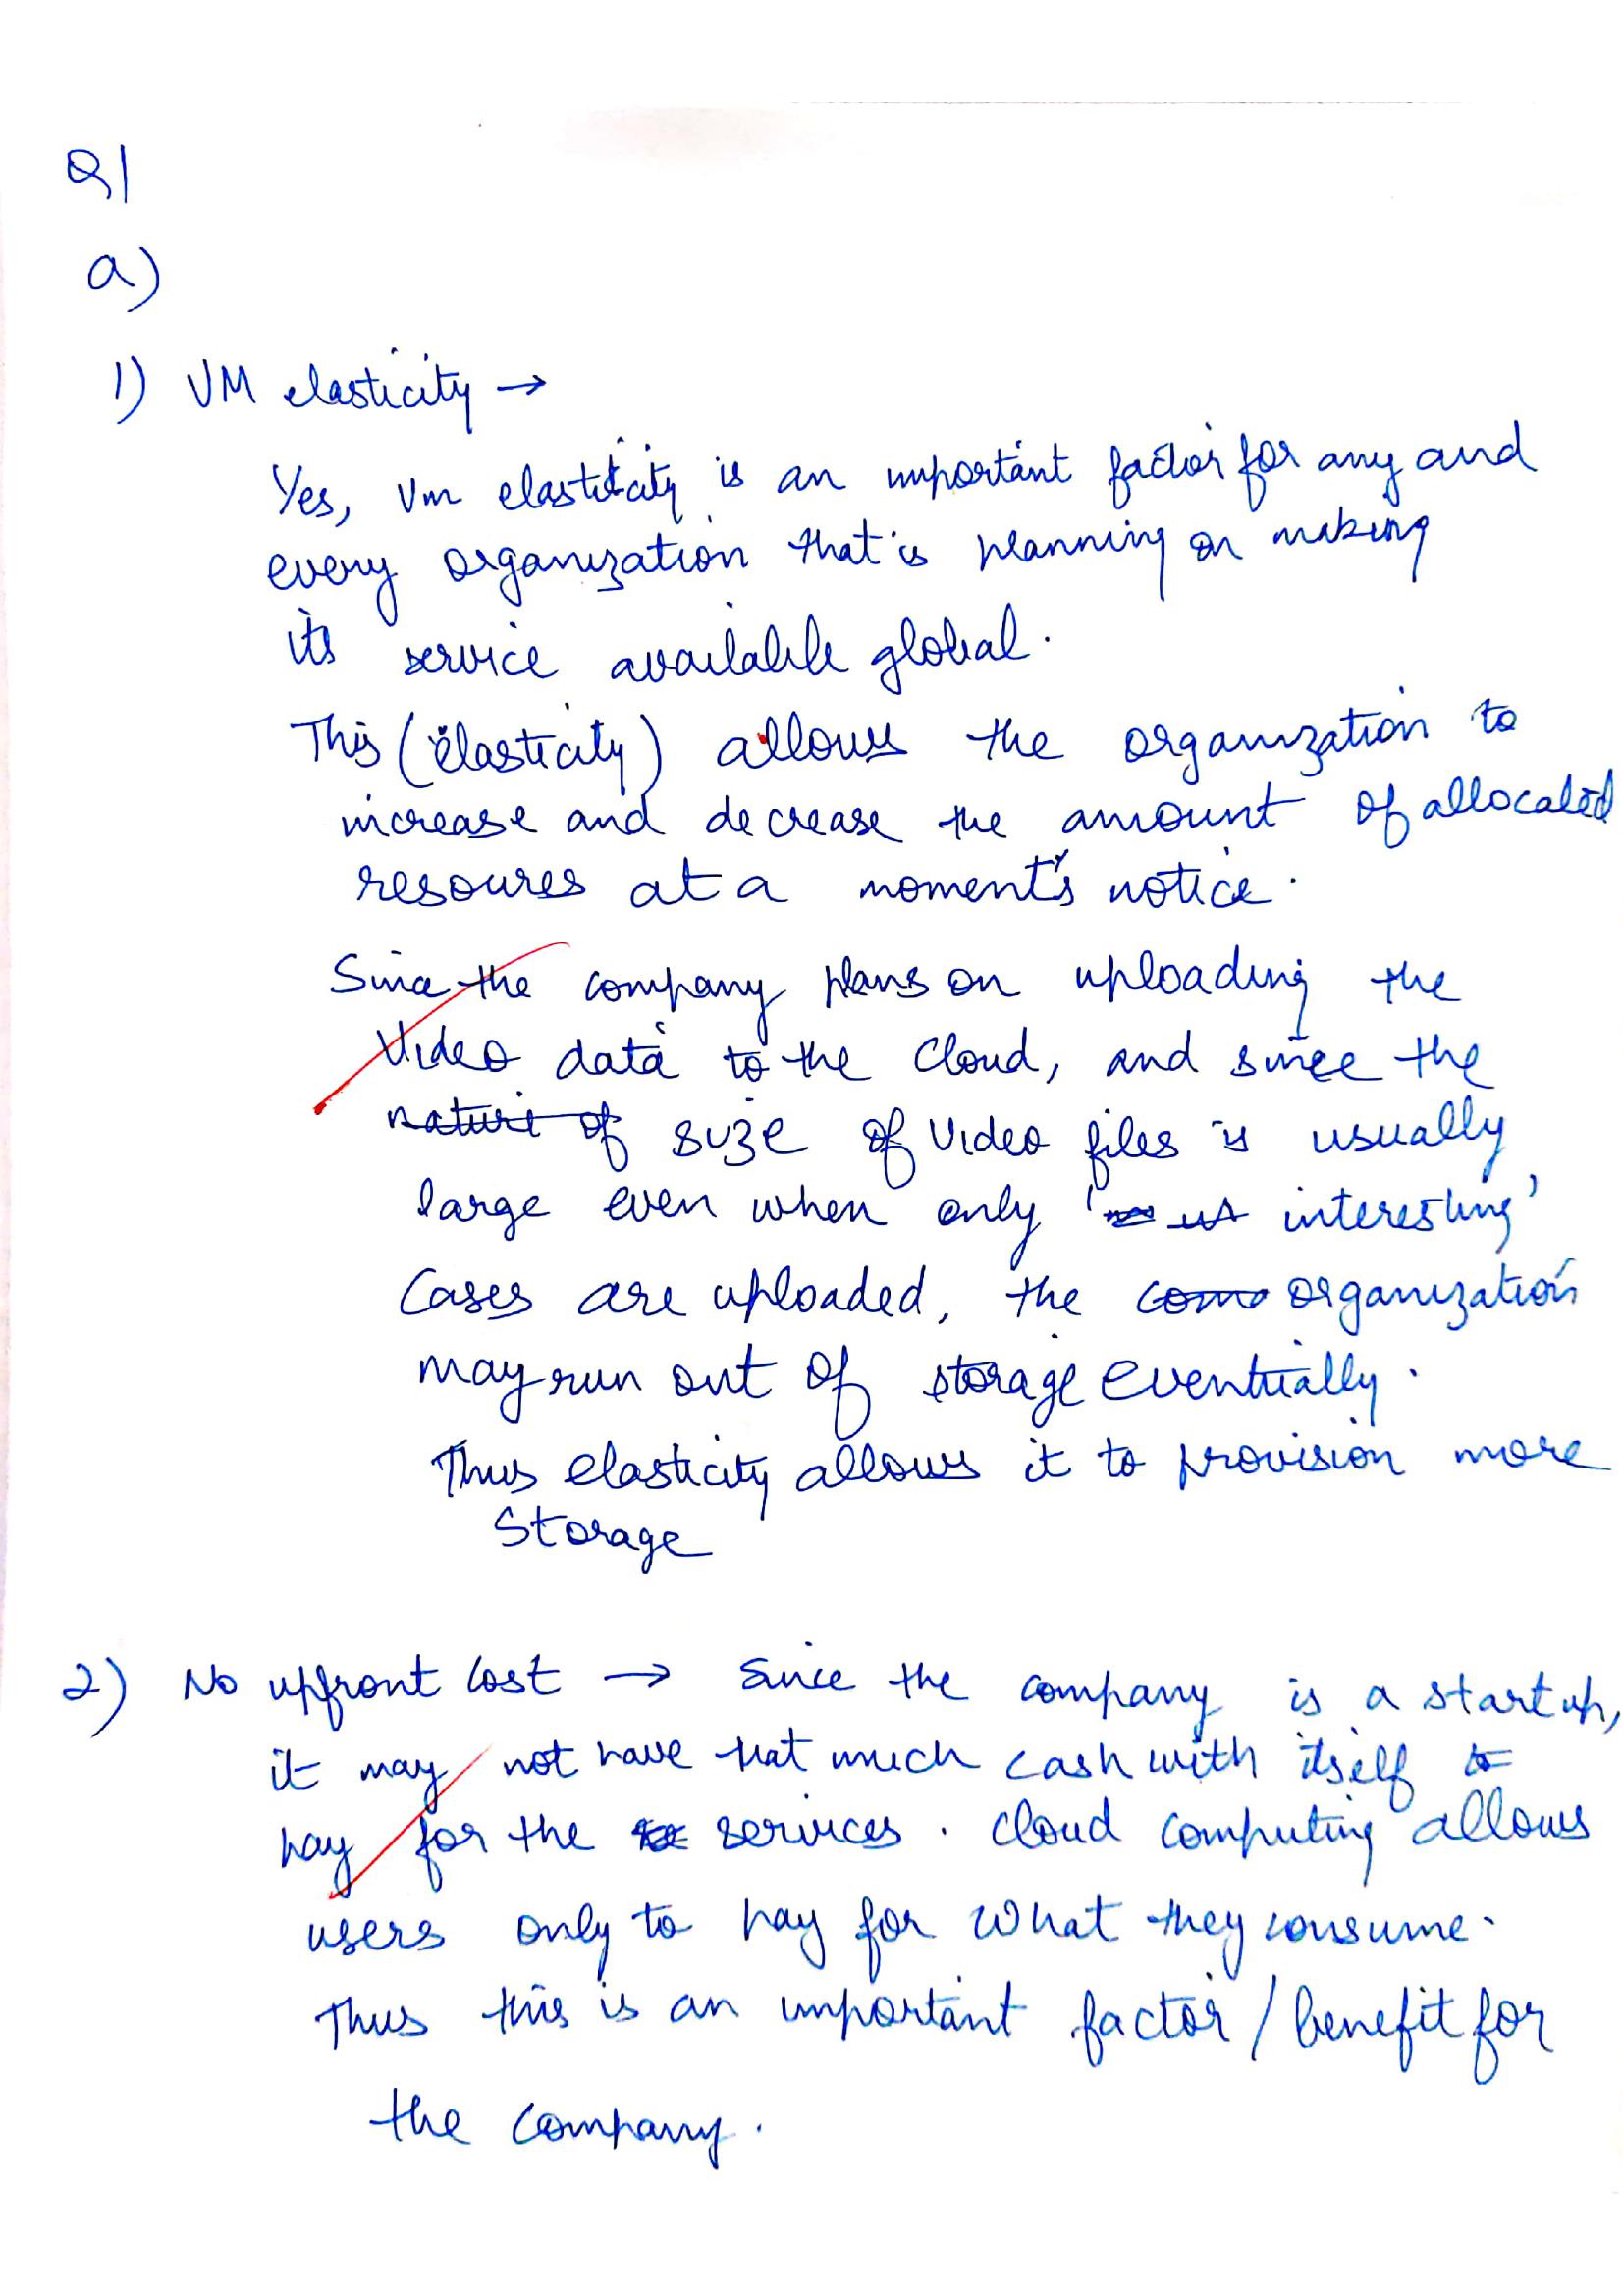 Q1
a)
1) VM elasticity →
Yes, Vm elasticity is an important factor for any and
every organization that is planning on making
its service available global.
This (elasticity) allows the organization to
increase and decrease the amount of allocated
resoures at a moment's notice.
Since the company plans on uploading the
Video data to the Cloud, and since the
nature of size of Video files is usually
large even when only 'interesting'
Cases are uploaded, the como organization
may run out of storage eventually.
Thus elasticity allows it to provision more
Storage
2) No upfront cost → Since the company is a startup,
it may not have that much cash with itself to
pay for the services. Cloud computing allows
users only to pay for what they consume.
Thus this is an important factor/benefit for
the company.